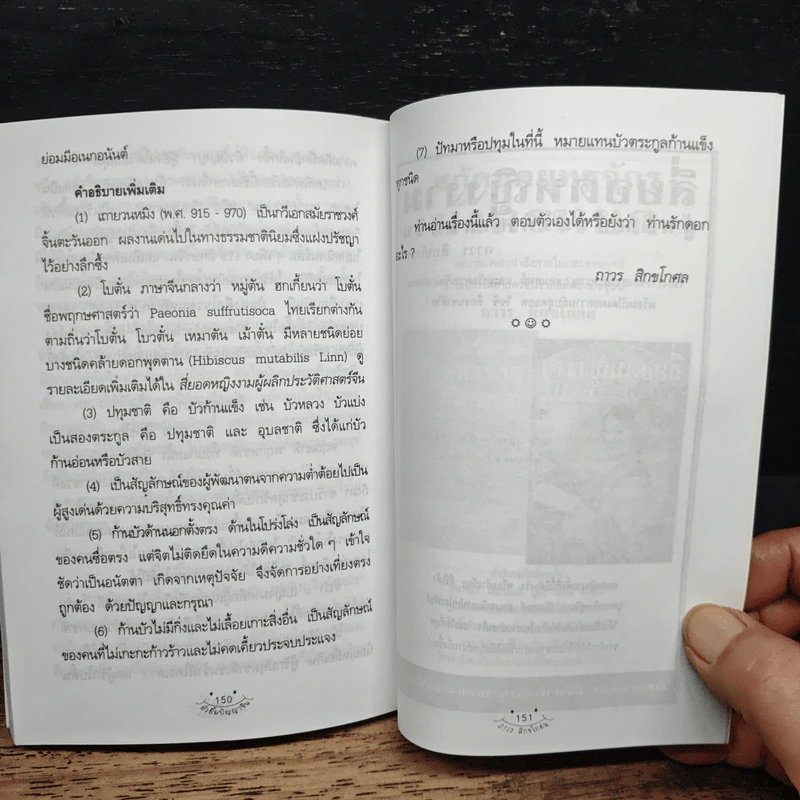 ย่อมมีอเนกอนันต์
คำอธิบายเพิ่มเติม
(1) เถายวนหมิง (พ.ศ. 915 - 970) เป็นกวีเอกสมัยราชวงศ์
จิ้นตะวันออก ผลงานเด่นไปในทางธรรมชาตินิยมซึ่งแฝงปรัชญา
ไว้อย่างลึกซึ้ง
(2) โบตั๋น ภาษาจีนกลางว่า หมู่ตัน ฮกเกี้ยนว่า โบตั๋น
ชื่อพฤกษศาสตร์ว่า Paeonia suffrutisoca ไทยเรียกต่างกัน
ตามถิ่นว่าโบตั๋น โบวตั๋น เหมาตัน เม้าตั๋น มีหลายชนิดย่อย
บางชนิดคล้ายดอกพุดตาน (Hibiscus mutabilis Linn) ดู
รายละเอียดเพิ่มเติมได้ใน สี่ยอดหญิงงามผู้ผลิกประวัติศาสตร์จีน
(3) ปทุมชาติ คือ บัวก้านแข็ง เช่น บัวหลวง บัวแบ่ง
เป็นสองตระกูล คือ ปทุมชาติ และ อุบลชาติ ซึ่งได้แก่บัว
ก้านอ่อนหรือบัวสาย
(4) เป็นสัญลักษณ์ของผู้พัฒนาตนจากความต่ำต้อยไปเป็น
ผู้สูงเด่นด้วยความบริสุทธิ์ทรงคุณค่า
(5) ก้านบัวด้านนอกตั้งตรง ด้านในโปร่งโล่ง เป็นสัญลักษณ์
ของคนซื่อตรง แต่จิตไม่ติดยึดในความดีความชั่วใด ๆ เข้าใจ
ชัดว่าเป็นอนัตตา เกิดจากเหตุปัจจัย จึงจัดการอย่างเที่ยงตรง
ถูกต้อง ด้วยปัญญาและกรุณา
(6) ก้านบัวไม่มีกิ่งและไม่เลื้อยเกาะสิ่งอื่น เป็นสัญลักษณ์
ของคนที่ไม่เกะกะก้าวร้าวและไม่คดเคี้ยวประจบประแจง
150
(7) ปัทมาหรือปทุมในที่นี้ หมายแทนบัวตระกูลก้านแข็ง
ทุกชนิด
ท่านอ่านเรื่องนี้แล้ว ตอบตัวเองได้หรือยังว่า ท่านรักดอก
อะไร ?
ถาวร สิกขโกศล
151
ถาวร สิกขโกศล